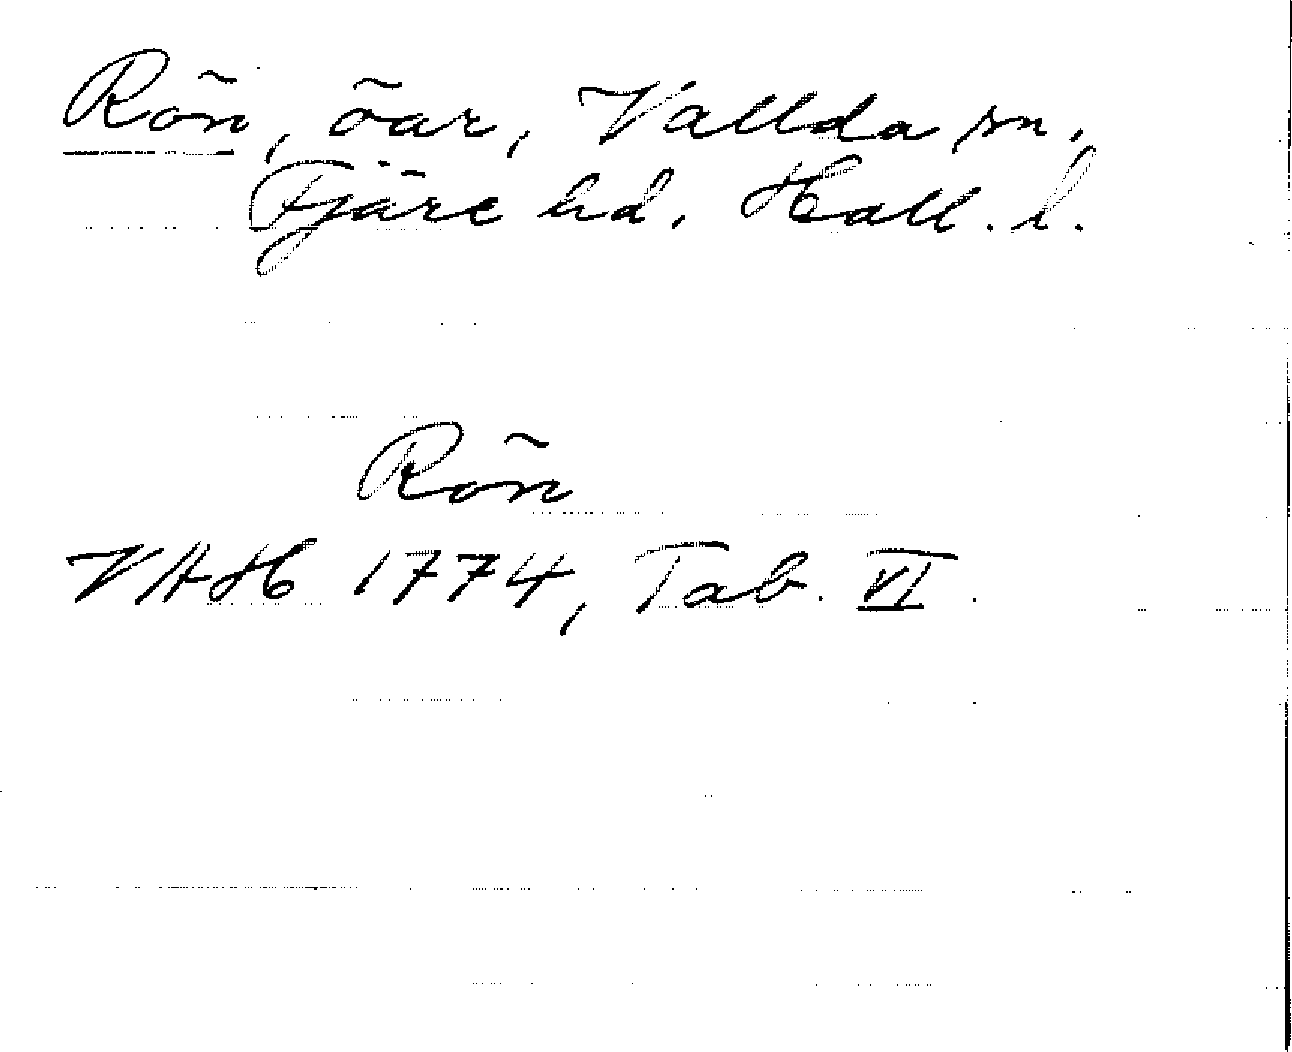 Rön, öar, Vallda sn,
Fjäre hd. Hall. l.
Rön
VAH 1774, Tab. VI.